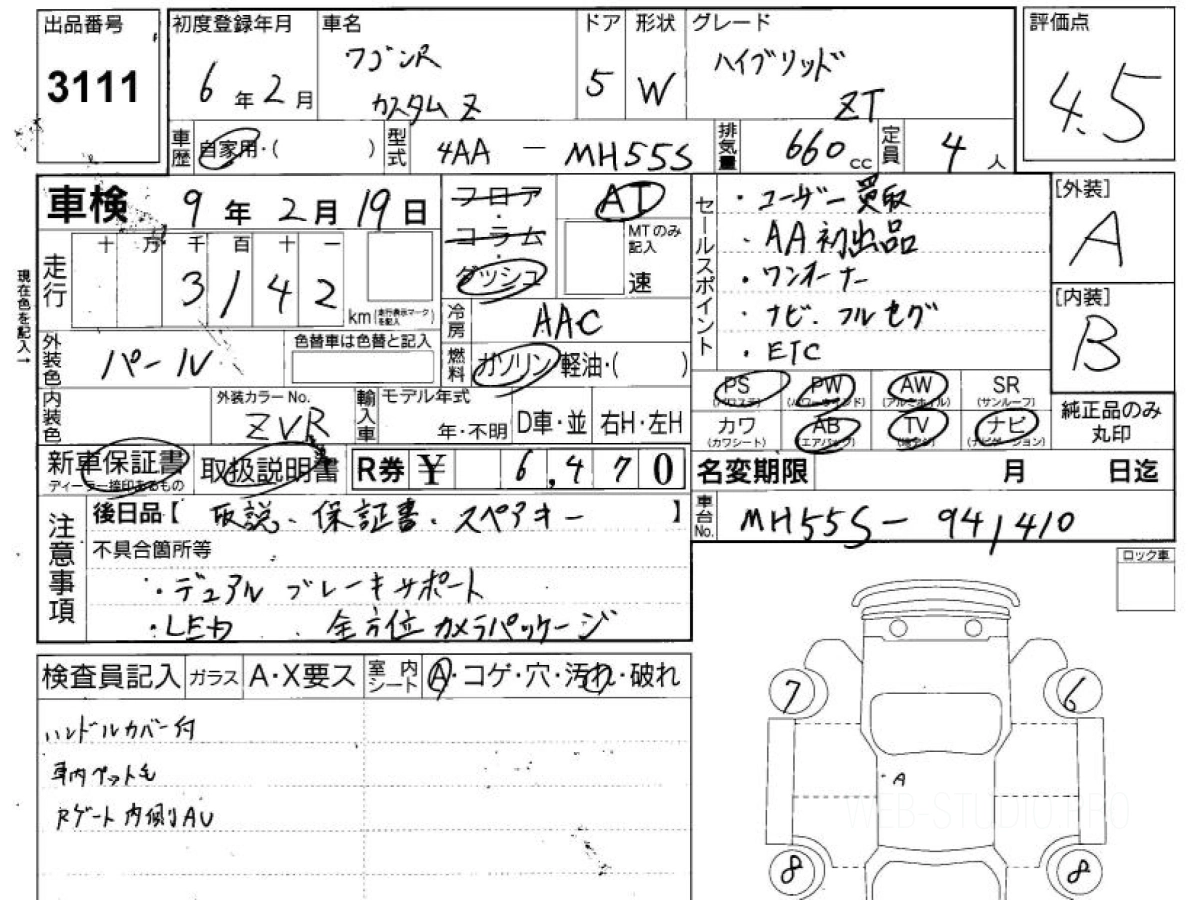 出品番号
3111
初度登録年月
6年2月
車名
ワゴンR
カスタムZ
ドア
5
形状
W
グレード
ハイブリッド
ZT
評価点
4.5
車歴
自家用・( )
型式
4AA - MH55S
排気量
660cc
定員
4人
車検 9年2月19日
フロア・コラム・ダッシュ
AT
MTのみ記入
速
現在色を記入→
走行
十 万 千 百 十 一
3 1 4 2
km(走行表示マークを記入)
冷房
AAC
外装色
パール
色替車は色替と記入
燃料
ガソリン・軽油・( )
内装色
外装カラーNo.
ZVR
輸入車
モデル年式
年・不明
D車・並
右H・左H
新車保証書
ディーラー捺印あるもの
取扱説明書
R券 ¥ 6,470
セールスポイント
・ユーザー買取
・AA初出品
・ワンオーナー
・ナビ・フルセグ
・ETC
[外装]
A
[内装]
B
PS
(パワステ)
PW
(パワーウインド)
AW
(アルミホイル)
SR
(サンルーフ)
カワ
(カワシート)
AB
(エアバッグ)
TV
ナビ
(ナビゲーション)
純正品のみ
丸印
名変期限 月 日迄
車台No.
MH55S-941410
注意事項
後日品【 取説、保証書、スペアキー 】
不具合箇所等
・デュアルブレーキサポート
・LED 、全方位カメラパッケージ
ロック車
検査員記入
ガラス
A・X要ス
室内シート
A・コゲ・穴・汚れ・破れ
ハンドルカバー付
車内ペット毛
Rゲート内側リAU
7
6
A
8
8
WEB-STUDIO.PRO